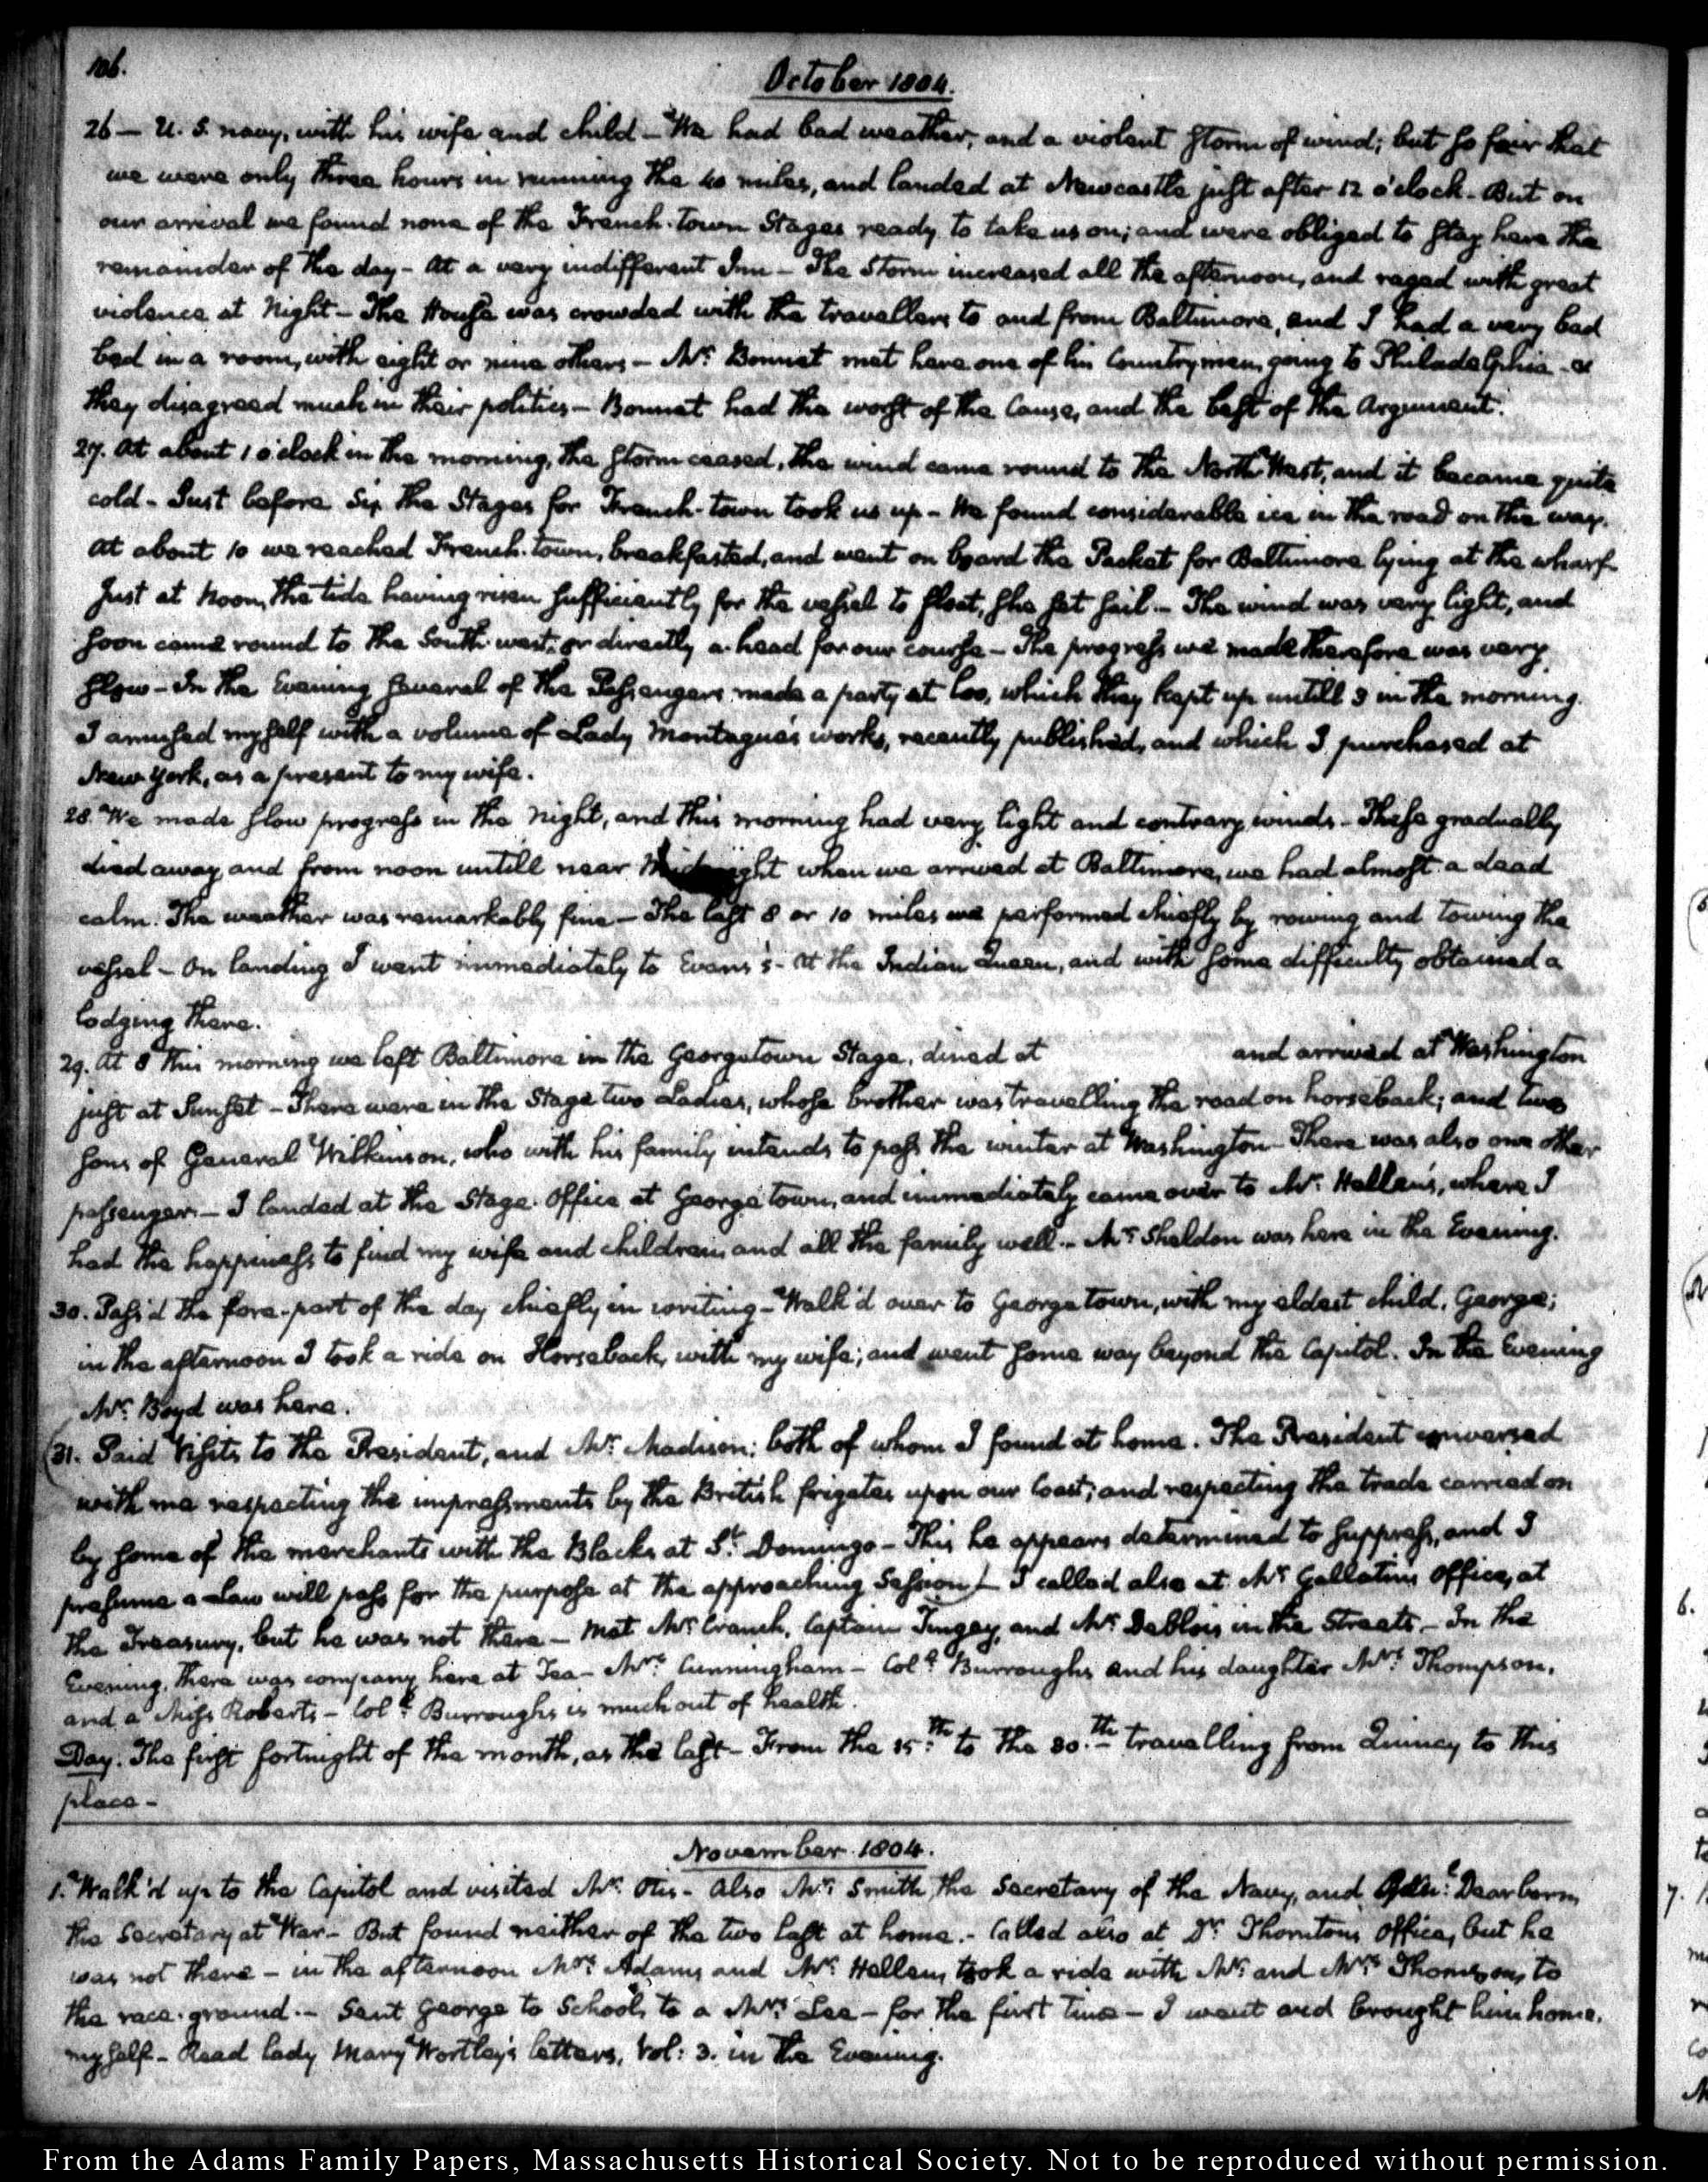 106.
October 1804.
26 — U. S. navy, with his wife and child — We had bad weather, and a violent storm of wind; but so fair that
we were only three hours in running the 40 miles, and landed at Newcastle just after 12 o'clock. But on
our arrival we found none of the French-town Stages ready to take us on; and were obliged to stay here the
remainder of the day — At a very indifferent Inn — The Storm increased all the afternoon, and raged with great
violence at Night — The House was crowded with the travellers to and from Baltimore, and I had a very bad
bed in a room, with eight or nine others — Mr. Bonnet met here one of his Countrymen, going to Philadelphia - &
they disagreed much in their politics — Bonnet had the worst of the Cause, and the best of the Argument.
27. At about 1 o'clock in the morning, the storm ceased, the wind came round to the North West, and it became quite
cold - Just before Six the Stages for French-town took us up - We found considerable ice in the road on the way.
At about 10 we reached French-town, breakfasted, and went on board the Packet for Baltimore lying at the wharf.
Just at Noon, the tide having risen sufficiently for the vessel to float, she set sail — The wind was very light, and
soon came round to the South-west, or directly a-head for our course — The progress we made therefore was very
slow — In the Evening several of the Passengers made a party at loo, which they kept up untill 3 in the morning.
I amused myself with a volume of Lady Montague's works, recently published, and which I purchased at
New York, as a present to my wife.
28. We made slow progress in the Night, and this morning had very light and contrary winds — These gradually
died away and from noon untill near Midnight when we arrived at Baltimore, we had almost a dead
calm. The weather was remarkably fine — The last 8 or 10 miles we performed chiefly by rowing and towing the
vessel — On landing I went immediately to Evans's - at the Indian Queen, and with some difficulty obtained a
lodging there.
29. At 8 this morning we left Baltimore in the Georgetown Stage, dined at and arrived at Washington
just at Sunset — There were in the Stage two Ladies, whose brother was travelling the road on horseback; and two
sons of General Wilkinson, who with his family intends to pass the winter at Washington — There was also one other
passenger — I landed at the Stage-Office at Georgetown, and immediately came over to Mr. Hellen's, where I
had the happiness to find my wife and children, and all the family well — Mr. Sheldon was here in the Evening.
30. Pass'd the fore-part of the day chiefly in writing — Walk'd over to Georgetown, with my eldest child, George;
in the afternoon I took a ride on Horseback, with my wife; and went some way beyond the Capitol. In the Evening
Mr. Boyd was here.
(31. Paid Visits to the President, and Mr. Madison: both of whom I found at home. The President conversed
with me respecting the impressments by the British frigates upon our Coast; and respecting the trade carried on
by some of the merchants with the Blacks at St. Domingo — This he appears determined to suppress, and I
presume a Law will pass for the purpose at the approaching Session) — I called also at Mr. Gallatin's Office, at
the Treasury, but he was not there — Met Mr. Cranch, Captain Tingey, and Mr. Deblois in the Streets — In the
Evening, there was company here at Tea — Mrs. Cunningham — Coll. Burroughs and his daughter Mrs. Thompson,
and a Miss Roberts — Coll. Burroughs is much out of health.
Day. The first fortnight of the month, as the last — From the 15th. to the 30.th travelling from Quincy to this
place —
November 1804.
1. Walk'd up to the Capitol and visited Mr. Otis — Also Mr. Smith the Secretary of the Navy, and Genl. Dearborn,
the Secretary at War — But found neither of the two last at home. — Called also at Dr. Thornton's Office, but he
was not there — in the afternoon Mrs. Adams and Mr. Hellen, took a ride with Mr. and Mrs. Thompson, to
the race-ground. — Sent George to School, to a Mrs. Lee — for the first time — I went and brought him home,
myself — Read Lady Mary Wortley's letters, Vol: 3. in the Evening.
From the Adams Family Papers, Massachusetts Historical Society. Not to be reproduced without permission.